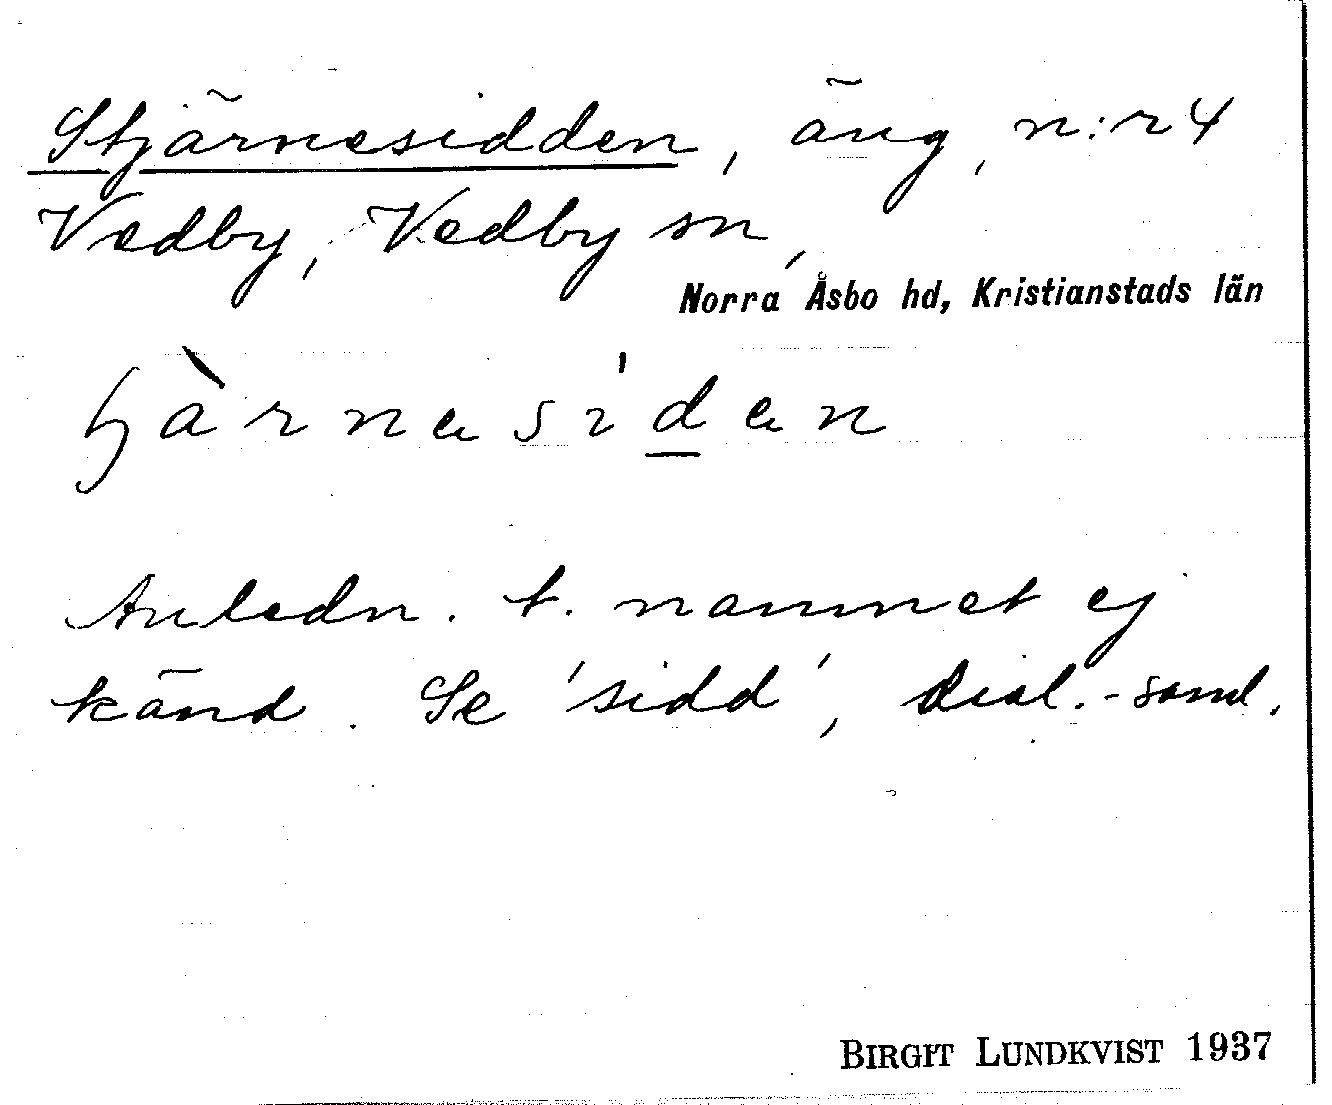 Stjärnesidden, äng, n:r 4
Vedby, Vedby sn,
Norra Åsbo hd, Kristianstads län
Anledn. t. namnet ej
känd. Se 'sidd', dial.-saml.
BIRGIT LUNDKVIST 1937